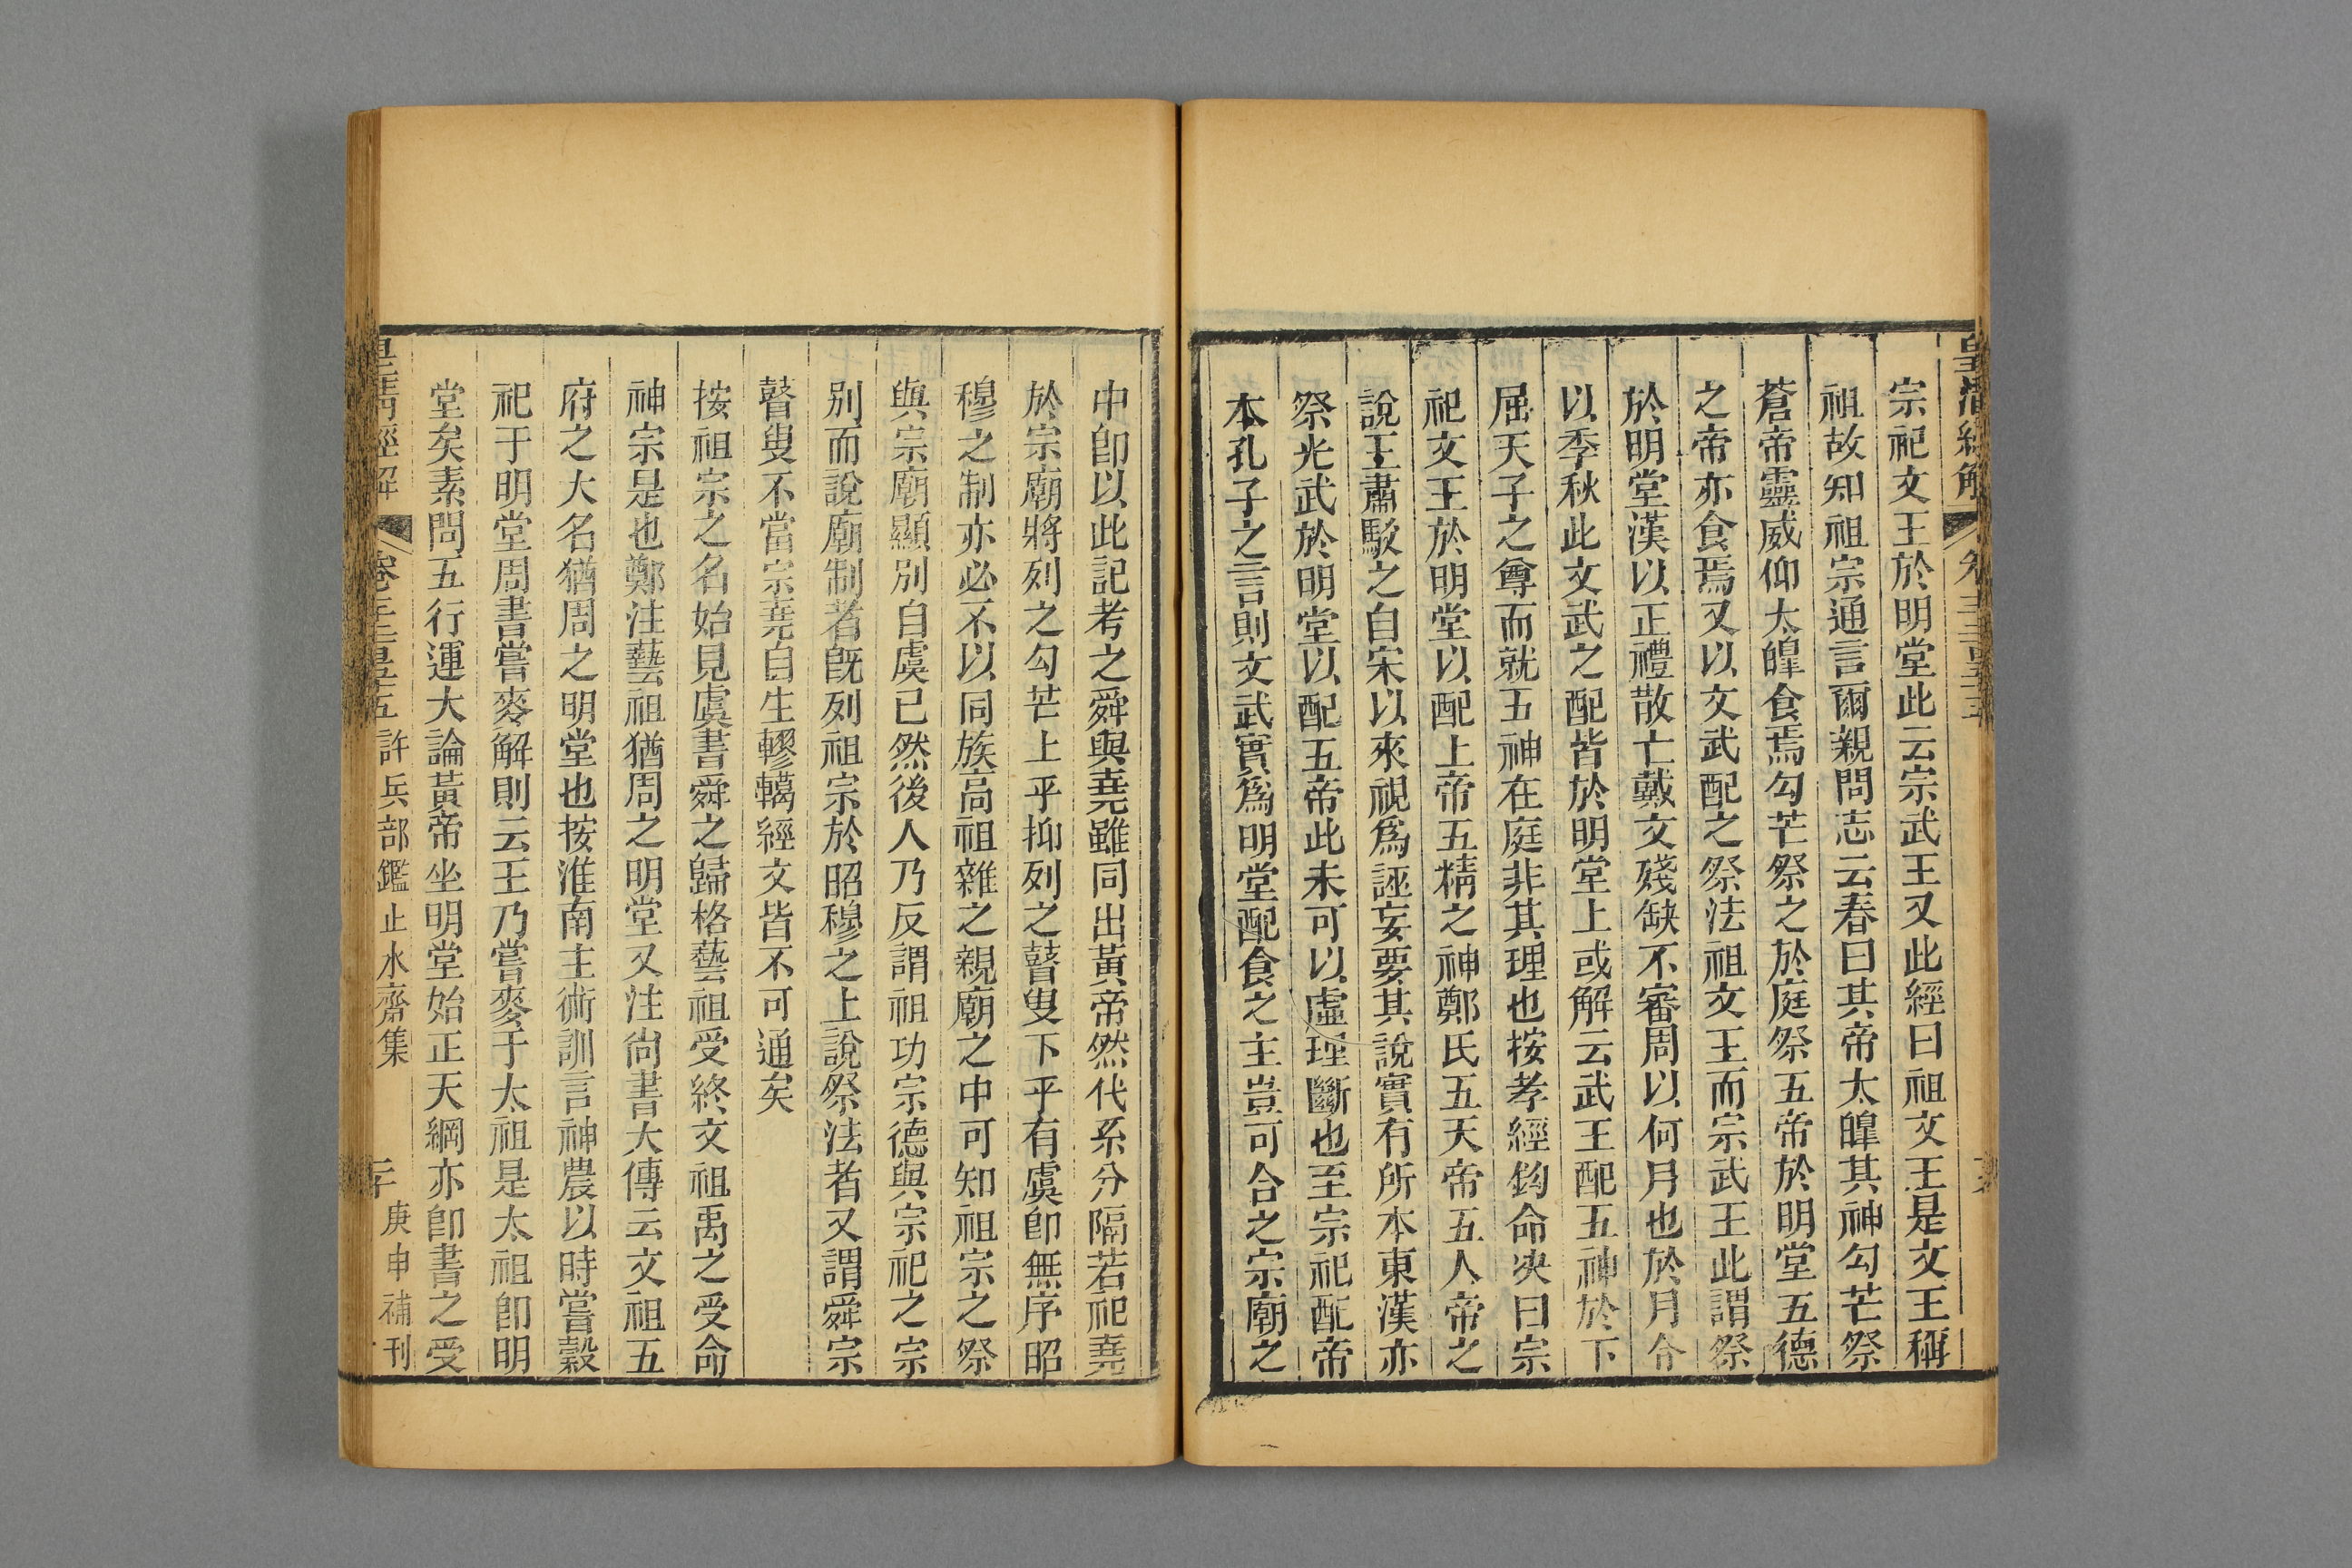 宗祀文王於明堂此云宗武王又此經曰祖文王是文王稱
祖故知祖宗通言爾雜問志云春曰其帝太皥其神勾芒祭
蒼帝靈威仰太皥食焉勾芒祭之於庭祭五帝於明堂五德
之帝亦食焉又以文武配之祭法祖文王而宗武王此謂祭
於明堂漢以正禮散亡戴文殘缺不審周以何月也於月令
以季秋此文武之配皆於明堂上或解云武王配五神於下
屈天子之尊而就五神在庭非其理也按孝經鉤命決曰宗
祀文王於明堂以配上帝五精之神鄭氏五天帝五人帝之
說王肅駁之自宋以來視爲誣妄要其說實有所本東漢亦
祭光武於明堂以配五帝此未可以虛理斷也至宗祀配帝
本孔子之言則文武實爲明堂配食之主豈可合之宗廟之
中卽以此記考之舜與堯雖同出黃帝然代系分隔若祀堯
於宗廟將列之勾芒上乎抑列之瞽叟下乎有虞卽無序昭
穆之制亦必不以同族高祖雜之親廟之中可知祖宗之祭
與宗廟顯別自虞已然後人乃反謂祖功宗德與宗祀之宗
別而說廟制者旣列祖宗於昭穆之上說祭法者又謂舜宗
瞽叟不當宗堯自生轇轕經文皆不可通矣
按祖宗之名始見虞書舜之歸格藝祖受終文祖禹之受命
神宗是也鄭注藝祖猶周之明堂又注尙書大傳云文祖五
府之大名猶周之明堂也按淮南主術訓言神農以時嘗穀
祀于明堂周書嘗麥解則云王乃嘗麥于太祖是太祖卽明
堂矣素問五行運大論黃帝坐明堂始正天綱亦卽書之受
皇淸經解 卷 許兵部鑑止水齋集 庚申補刊